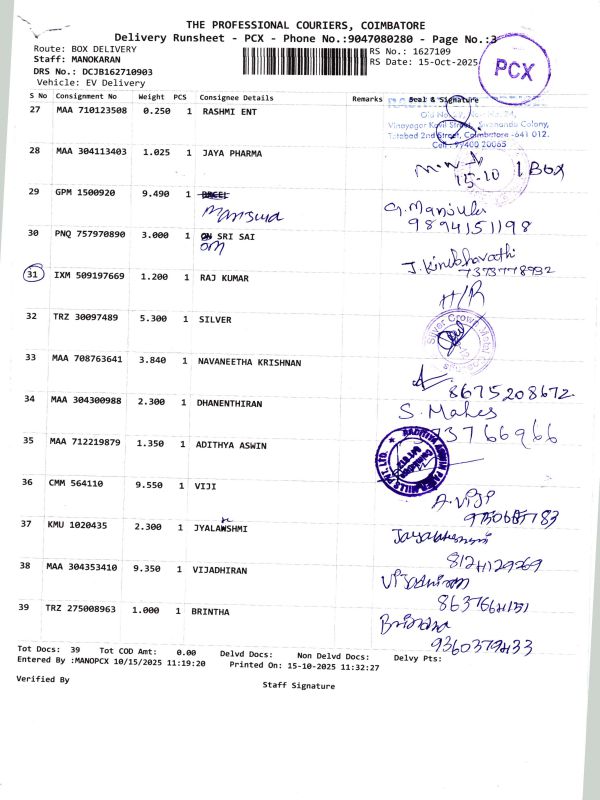 THE PROFESSIONAL COURIERS, COIMBATORE
Delivery Runsheet - PCX - Phone No.:9047080280 - Page No.:3
Route: BOX DELIVERY
RS No.: 1627109
Staff: MANOKARAN
RS Date: 15-Oct-2025
DRS No.: DCJB162710903
Vehicle: EV Delivery
PCX
S No Consignment No Weight PCS Consignee Details Remarks Seal & Signature
27 MAA 710123508 0.250 1 RASHMI ENT
Vinayagar Kovil Street, Sivananda Colony,
Tatabad 2nd Street, Coimbatore -641 012.
Cell: 99400 20065
28 MAA 304113403 1.025 1 JAYA PHARMA
15-10 1 Box
29 GPM 1500920 9.490 1
Manjula
G. Manjula
9894151198
30 PNQ 757970890 3.000 1 SRI SAI
OM
J. Kirubharathi
7373778932
31 IXM 509197669 1.200 1 RAJ KUMAR
H/R
32 TRZ 30097489 5.300 1 SILVER
Silver Crown Metal
33 MAA 708763641 3.840 1 NAVANEETHA KRISHNAN
8675208672
34 MAA 304300988 2.300 1 DHANENTHIRAN
S. Mahes
73766966
35 MAA 712219879 1.350 1 ADITHYA ASWIN
AADITHYA ASWIN PAPER MILLS PVT. LTD.
36 CMM 564110 9.550 1 VIJI
A. VIJI
37 KMU 1020435 2.300 1 JYALAWSHMI
8124129569
38 MAA 304353410 9.350 1 VIJADHIRAN
Vijadhiran
8637664151
39 TRZ 275008963 1.000 1 BRINTHA
Brindha
9360379433
Tot Docs: 39 Tot COD Amt: 0.00 Delvd Docs: Non Delvd Docs: Delvy Pts:
Entered By :MANOPCX 10/15/2025 11:19:20 Printed On: 15-10-2025 11:32:27
Verified By
Staff Signature